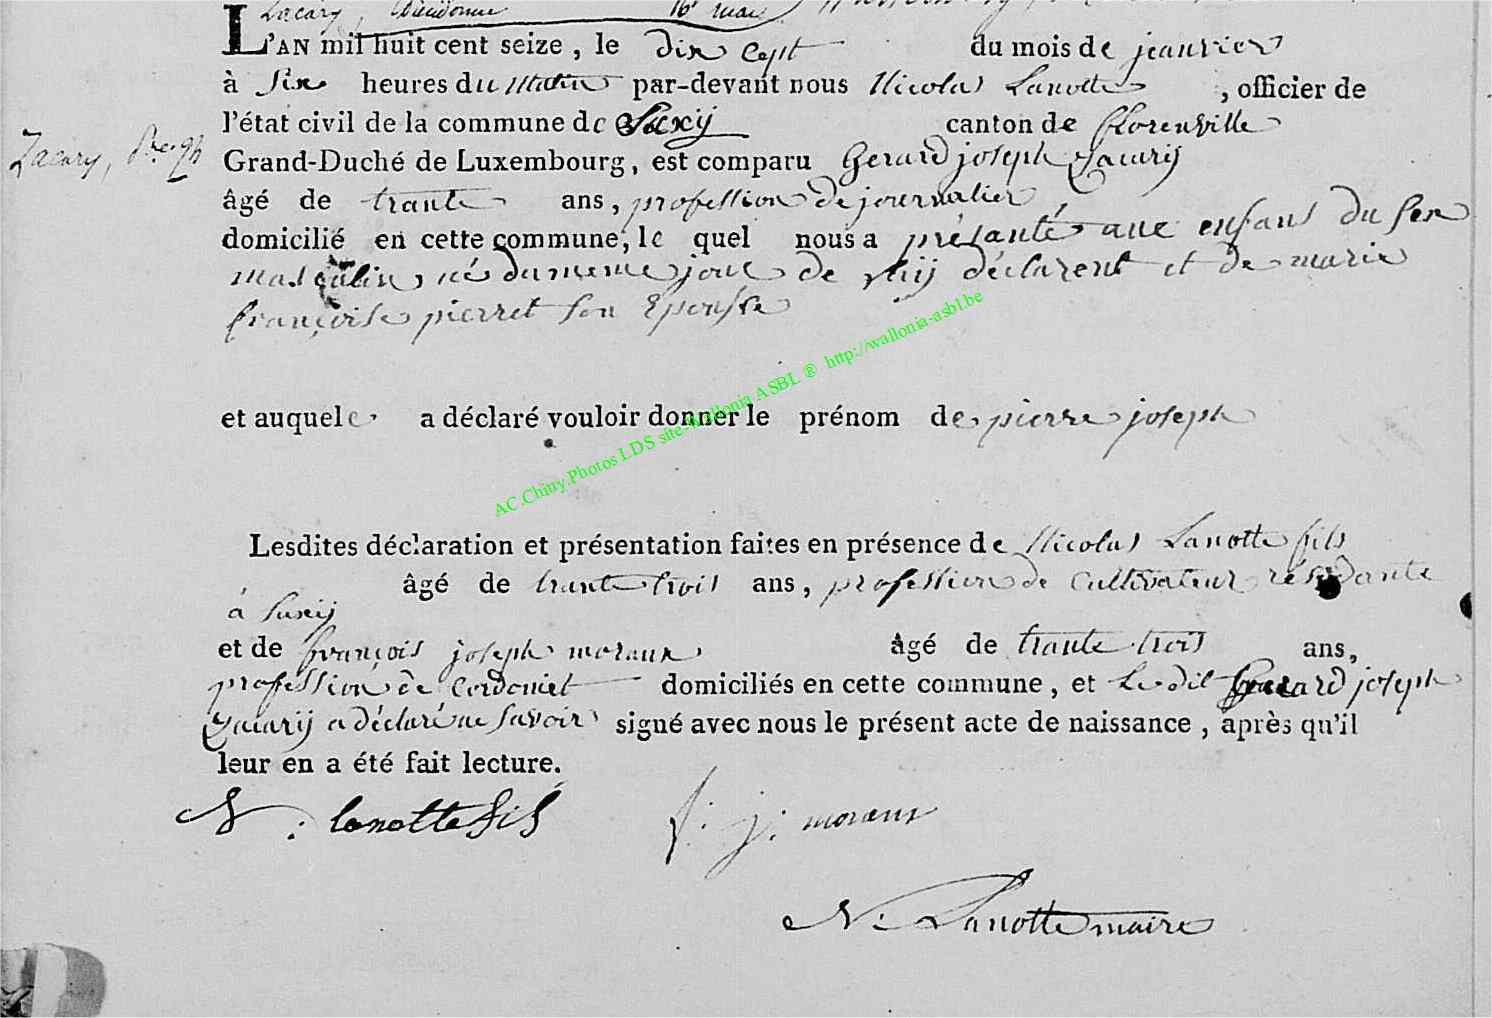 Lacary, Dieudonné 16 mai
L'AN mil huit cent seize, le dix cept du mois de jeanvier
à six heures du matin par-devant nous Nicolas Lanotte, officier de
l'état civil de la commune de Suxÿ canton de florenville
Zacary, Pre. Jph
Grand-Duché de Luxembourg, est comparu Gerard joseph Zacarÿ
âgé de trante ans, profession de journalier
domicilié en cette commune, le quel nous a présanté une enfans du sex
masculin, né du meme jour de luij déclarent et de marie
françoise pierret son Epousse
et auquel a déclaré vouloir donner le prénom de pierre joseph
AC.Chiny.Photos LDS site Wallonia ASBL ® http://wallonia-asbl.be
Lesdites déclaration et présentation faites en présence de Nicolas Lanotte fils
âgé de trante trois ans, profession de cultivateur résidante
à Suxÿ
et de françois joseph moraux âgé de trante trois ans,
profession de cordoniet domiciliés en cette commune, et le dit Gerard joseph
Zacarÿ a déclaré ne savoir signé avec nous le présent acte de naissance, après qu'il
leur en a été fait lecture.
N : lanotte fils f. j. moraux
N : Lanotte maire